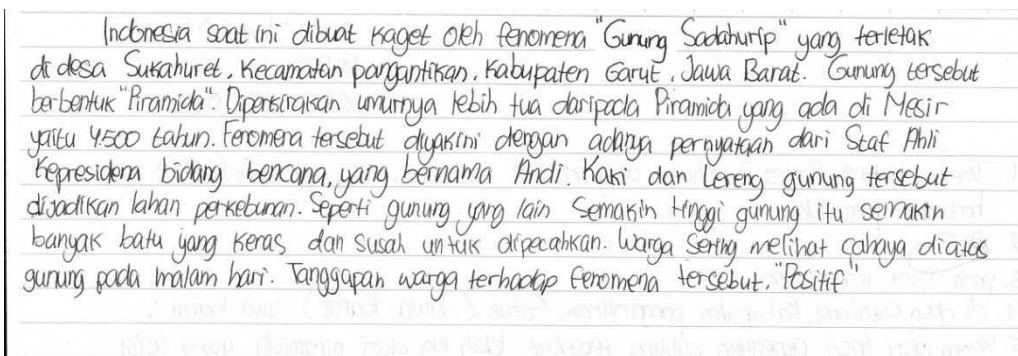 Indonesia saat ini dibuat kaget oleh fenomena "Gunung Sadahurip" yang terletak
di desa Sukahuret, Kecamatan pangantikan, Kabupaten Garut, Jawa Barat. Gunung tersebut
berbentuk "Piramida". Diperkirakan umurnya lebih tua daripada Piramida yang ada di Mesir
yaitu 4.500 tahun. Fenomena tersebut diyakini dengan adanya pernyataan dari Staf Ahli
Kepresidena bidang bencana, yang bernama Andi. Kaki dan Lereng gunung tersebut
dijadikan lahan perkebunan. Seperti gunung yang lain Semakin tinggi gunung itu semakin
banyak batu yang keras, dan susah untuk dipecahkan. Warga Sering melihat cahaya diatas
gunung pada malam hari. Tanggapan warga terhadap fenomena tersebut, "Positif"